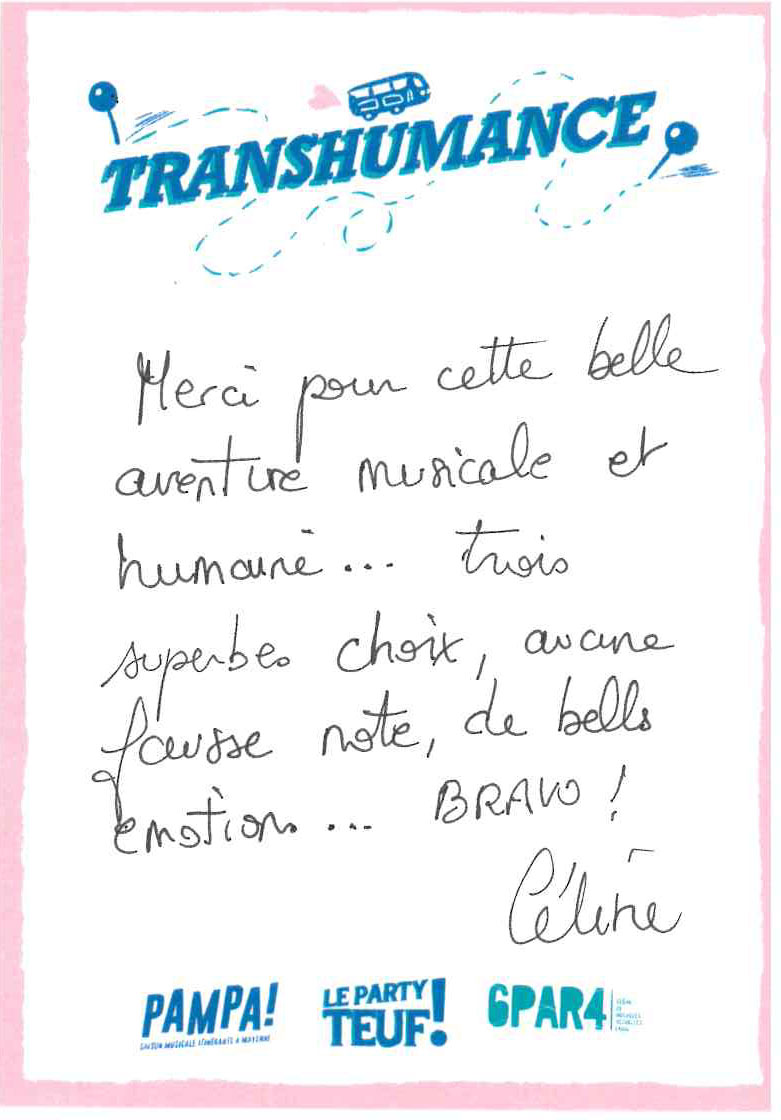 TRANSHUMANCE
Merci pour cette belle
aventure musicale et
humaine... trois
superbes choix, aucune
fausse note, de belles
émotions... BRAVO !
Céline
PAMPA! LE PARTY TEUF! 6PAR4
SAISON MUSICALE ITINÉRANTE À MAYENNE